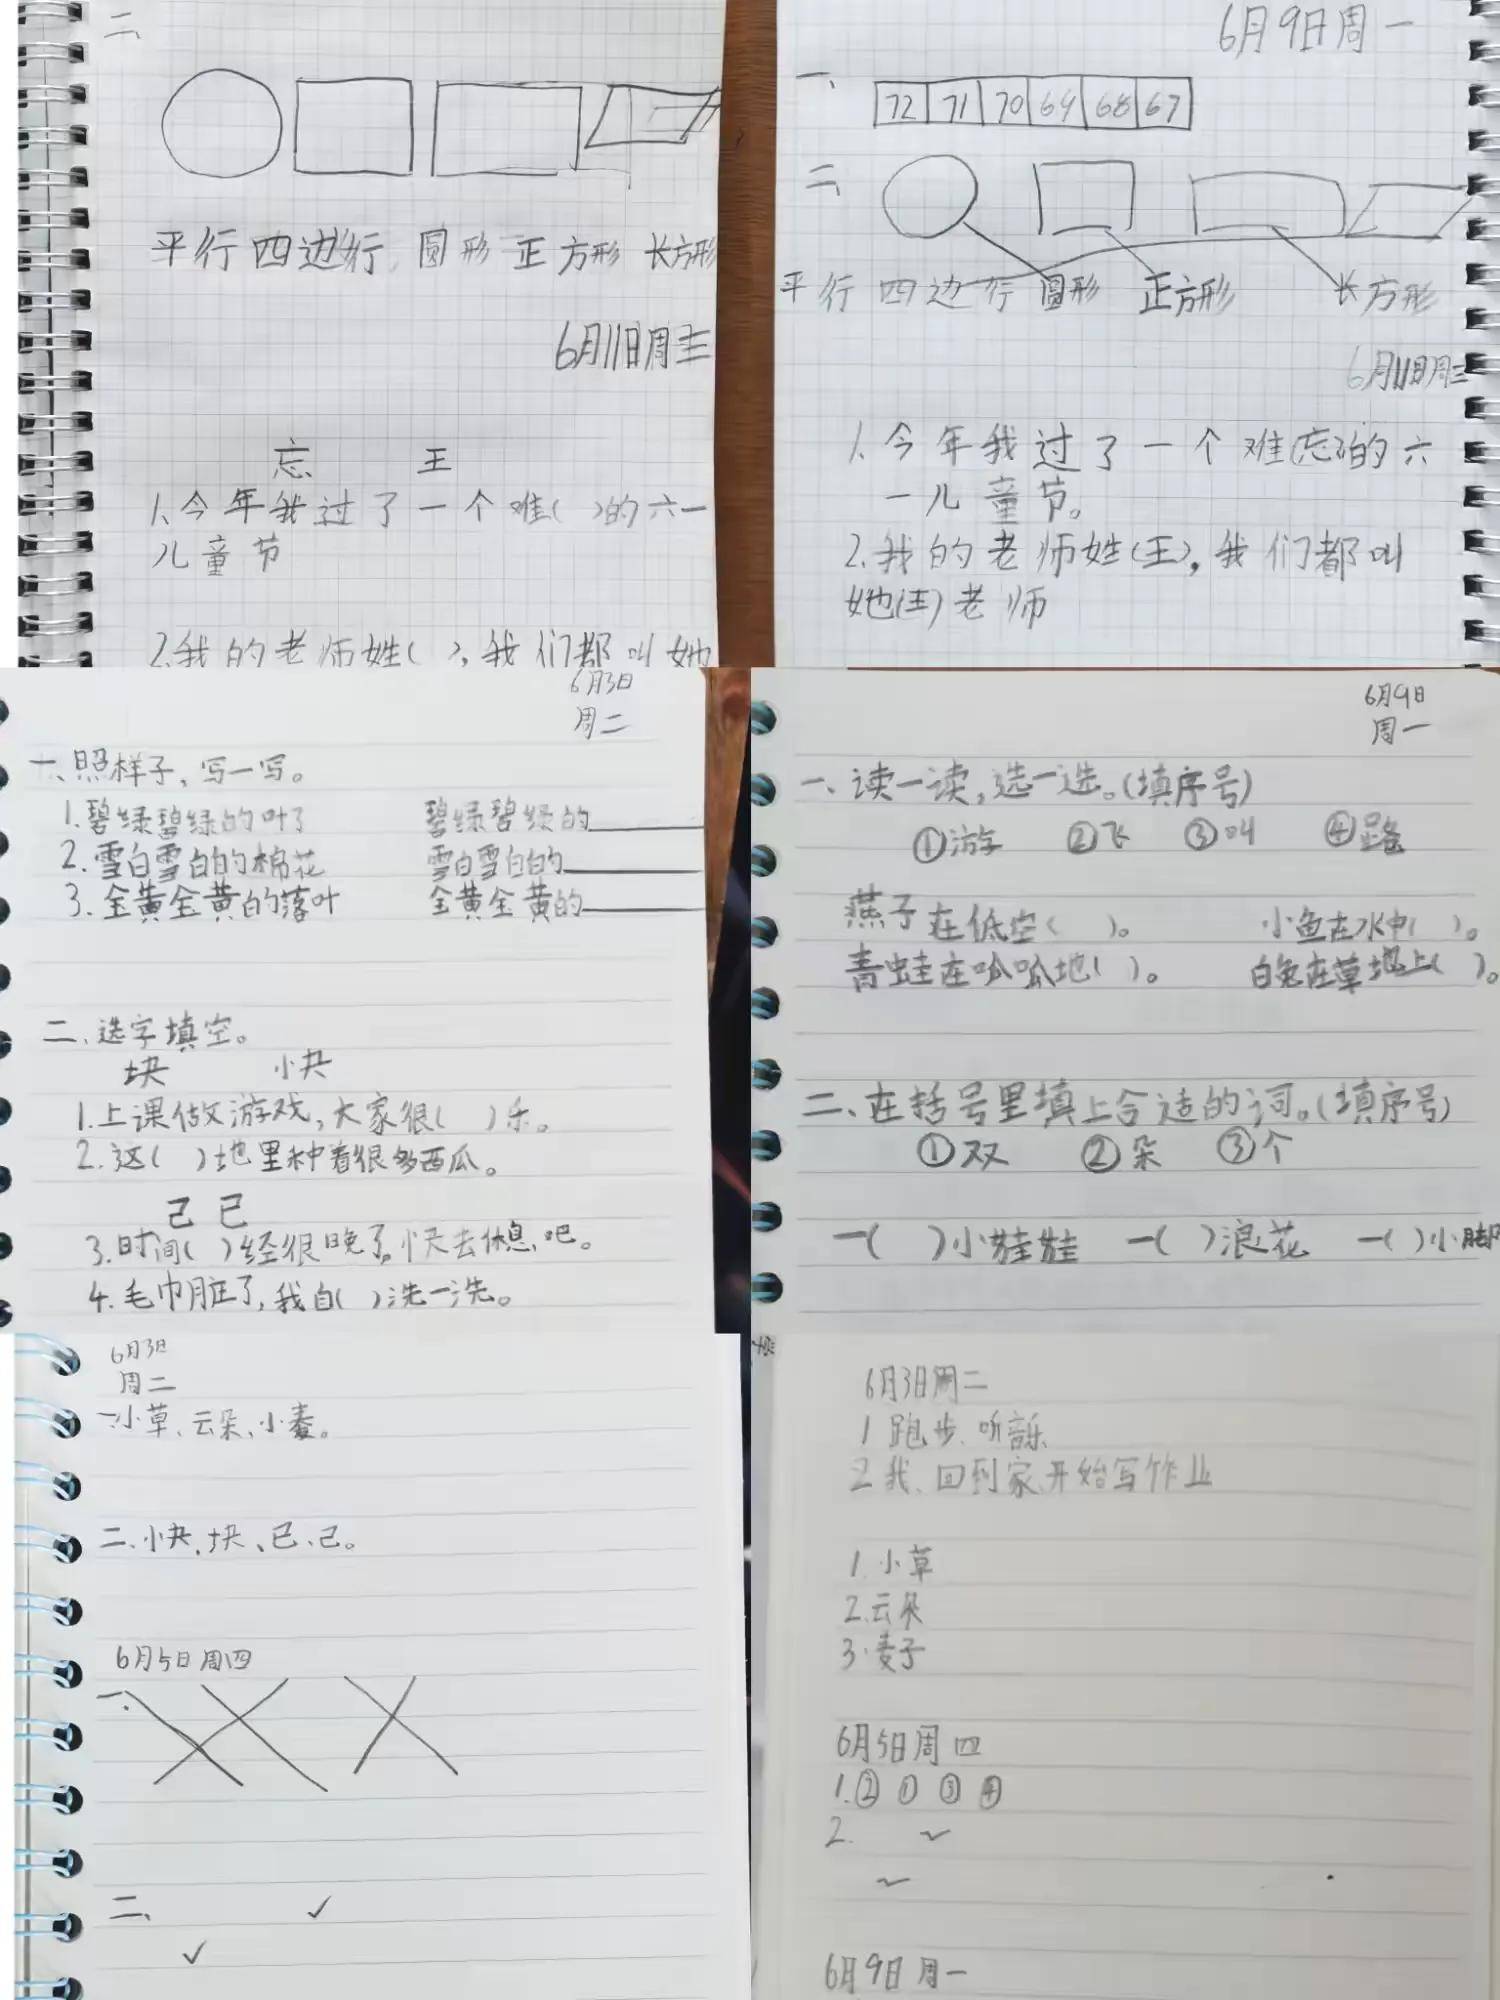 二、
平行四边行 圆形 正方形 长方形
6月11日周三
忘 王
1、今年我过了一个难( )的六一
儿童节
2、我的老师姓( ),我们都叫她
6月9日周一
一、
72 71 70 69 68 67
二、
平行四边行 圆形 正方形 长方形
6月11日周三
1、今年我过了一个难(忘)的六
一儿童节。
2、我的老师姓(王),我们都叫
她(王)老师
6月3日
周二
一、照样子,写一写。
1.碧绿碧绿的叶子 碧绿碧绿的______
2.雪白雪白的棉花 雪白雪白的______
3.金黄金黄的落叶 金黄金黄的______
二、选字填空。
块 快
1.上课做游戏,大家很( )乐。
2.这( )地里种着很多西瓜。
己 已
3.时间( )经很晚了,快去休息吧。
4.毛巾脏了,我自( )洗一洗。
6月9日
周一
一、读一读,选一选。(填序号)
①游 ②飞 ③叫 ④跑
燕子在低空( )。 小鱼在水中( )。
青蛙在呱呱地( )。 白兔在草地上( )。
二、在括号里填上合适的词。(填序号)
①双 ②朵 ③个
一( )小娃娃 一( )浪花 一( )小脚
6月3日
周二
一、小草、云朵、小麦。
二、快、块、已、己。
6月5日周四
一、
二、 ✓
✓
6月3日周二
1 跑步、听音乐
2 我、回到家、开始写作业
1.小草
2.云朵
3.麦子
6月5日周四
1.② ① ③ ④
2. ✓
✓
6月9日周一